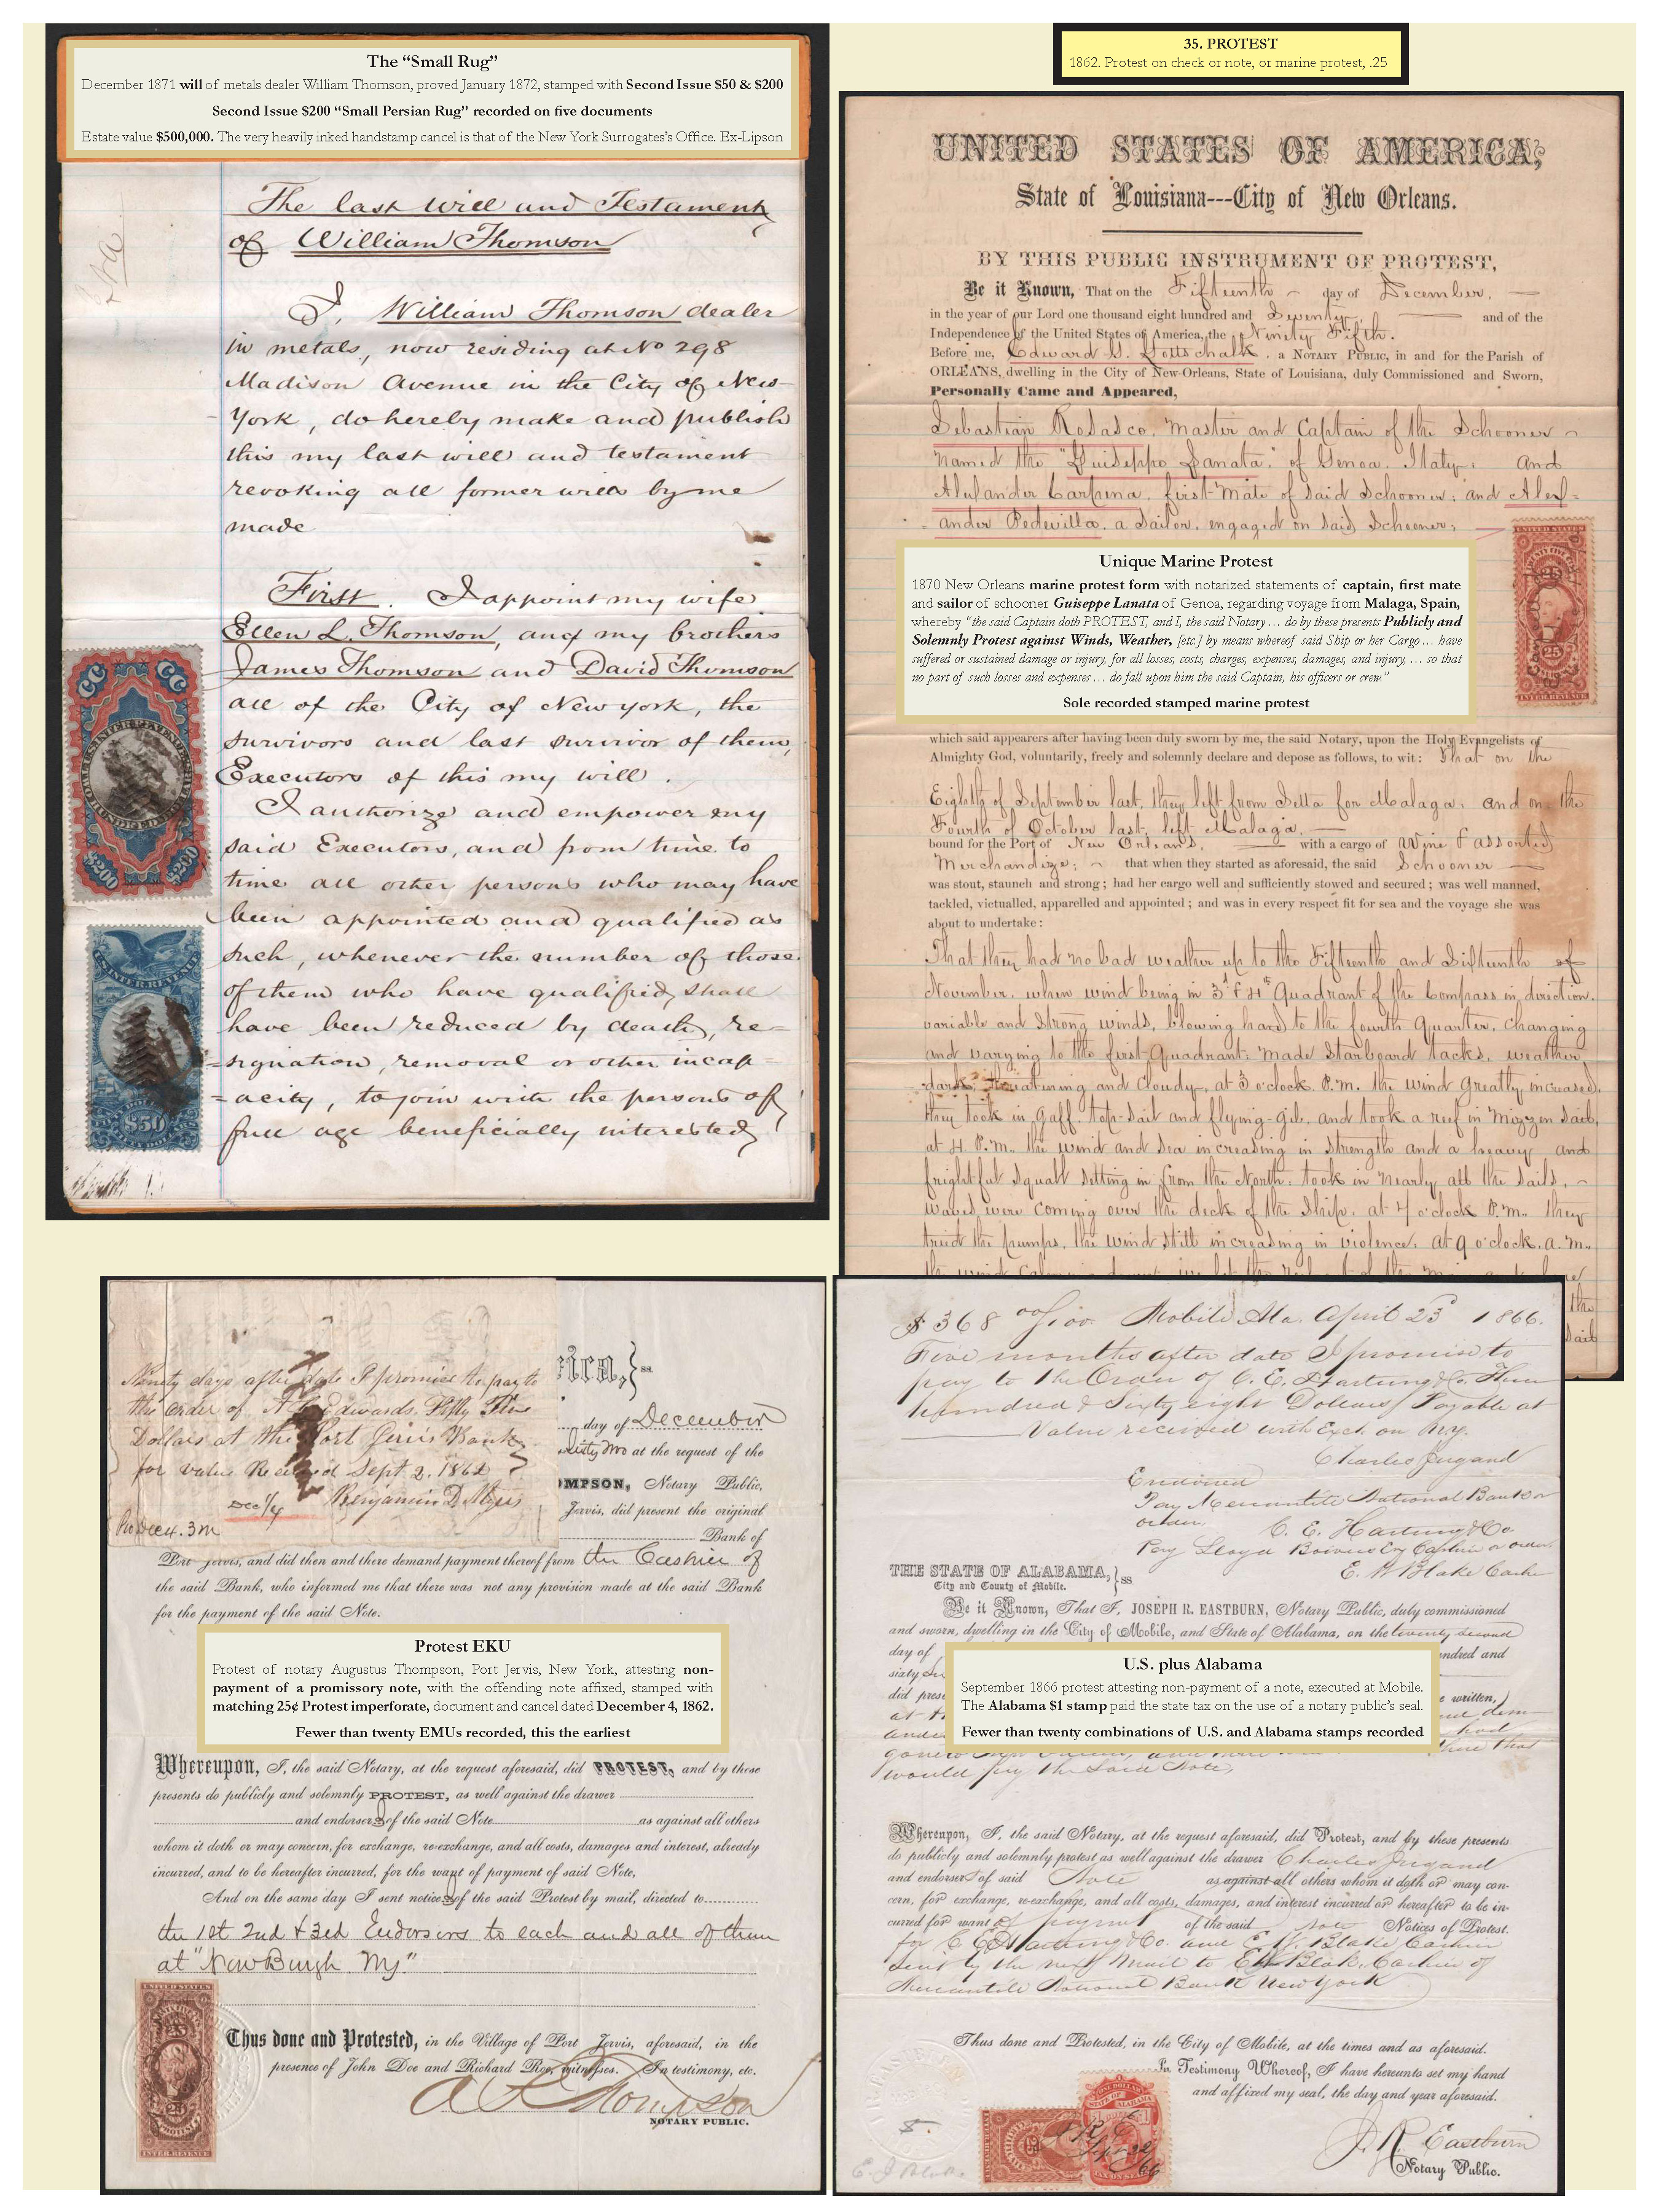 The “Small Rug”
December 1871 will of metals dealer William Thomson, proved January 1872, stamped with Second Issue $50 & $200
Second Issue $200 “Small Persian Rug” recorded on five documents
Estate value $500,000. The very heavily inked handstamp cancel is that of the New York Surrogates’s Office. Ex-Lipson
The last Will and Testament
of William Thomson
I, William Thomson dealer
in metals, now residing at No 298
Madison Avenue in the City of New-
York, do hereby make and publish
this my last will and testament
revoking all former wills by me
made
First. I appoint my wife
Ellen L. Thomson, and my brothers
James Thomson and David Thomson
all of the City of New york, the
survivors and last survivor of them,
Executors of this my will.
I authorize and empower my
said Executors, and from time to
time all other persons who may have
been appointed and qualified as
such, whenever the number of those
of them who have qualified shall
have been reduced by death, re=
=signation, removal or other incap=
=acity, to join with the persons of
full age beneficially interested
CC CC
$200 $200
U.S. INTER. REVENUE
$50
35. PROTEST
1862. Protest on check or note, or marine protest, .25
UNITED STATES OF AMERICA;
State of Louisiana---City of New Orleans.
BY THIS PUBLIC INSTRUMENT OF PROTEST,
Be it Known, That on the Fifteenth day of December,
in the year of our Lord one thousand eight hundred and Seventy, and of the
Independence of the United States of America, the Ninety Fifth.
Before me, Edward G. Gottschalk, a NOTARY PUBLIC, in and for the Parish of
ORLEANS, dwelling in the City of New-Orleans, State of Louisiana, duly Commissioned and Sworn,
Personally Came and Appeared,
Sebastian Rosasco, Master and Captain of the Schooner
named the "Guiseppe Lanata" of Genoa, Italy; and
Alexander Carpena, first-Mate of said Schooner; and Alex=
=ander Pedevilla, a Sailor, engaged on said Schooner;
UNITED STATES
25 25
INTER. REVENUE
Unique Marine Protest
1870 New Orleans marine protest form with notarized statements of captain, first mate
and sailor of schooner Guiseppe Lanata of Genoa, regarding voyage from Malaga, Spain,
whereby “the said Captain doth PROTEST, and I, the said Notary … do by these presents Publicly and
Solemnly Protest against Winds, Weather, [etc.] by means whereof said Ship or her Cargo … have
suffered or sustained damage or injury, for all losses, costs, charges, expenses, damages, and injury, … so that
no part of such losses and expenses … do fall upon him the said Captain, his officers or crew.”
Sole recorded stamped marine protest
which said appearers after having been duly sworn by me, the said Notary, upon the Holy Evangelists of
Almighty God, voluntarily, freely and solemnly declare and depose as follows, to wit: That on the
Eighth of September last, they left from for Malaga, and on the
Fourth of October last, left Malaga,
bound for the Port of New Orleans, with a cargo of Wine & assorted
Merchandize; that when they started as aforesaid, the said Schooner
was stout, staunch and strong; had her cargo well and sufficiently stowed and secured; was well manned,
tackled, victualled, apparelled and appointed; and was in every respect fit for sea and the voyage she was
about to undertake:
That they had no bad weather up to the Fifteenth and Sixteenth of
November, when wind being in 3d & 4th Quadrant of the Compass in direction,
variable and strong winds, blowing hard to the fourth Quarter, changing
and varying to the first Quadrant; made Starboard tacks, weather
dark, threatening and cloudy, at 3 o'clock P.M. the wind greatly increased,
they took in gaff top-sail and flying-gib, and took a reef in Mizzen Sail,
at 4 P.M. the wind and sea increasing in strength and a heavy and
frightful squall setting in from the North; took in nearly all the sails,
waves were coming over the deck of the ship, at 7 o'clock P.M. they
tried the pumps, the wind still increasing in violence, at 9 o'clock a.m.
the
Ninety days after date I promise to pay to
the order of Edwards Fifty Five
Dollars at the Port Jervis Bank
for value Received Sept 2. 1862
Dec 1/4 Benjamin D Myers
Dec 4. 3m
ica, } ss.
day of December
sixty two at the request of the
OMPSON, Notary Public,
Jervis, did present the original
Bank of
Port Jervis, and did then and there demand payment thereof from the Cashier of
the said Bank, who informed me that there was not any provision made at the said Bank
for the payment of the said Note.
Protest EKU
Protest of notary Augustus Thompson, Port Jervis, New York, attesting non-
payment of a promissory note, with the offending note affixed, stamped with
matching 25¢ Protest imperforate, document and cancel dated December 4, 1862.
Fewer than twenty EMUs recorded, this the earliest
Whereupon, I, the said Notary, at the request aforesaid, did PROTEST, and by these
presents do publicly and solemnly PROTEST, as well against the drawer
and endorsers of the said Note as against all others
whom it doth or may concern, for exchange, re-exchange, and all costs, damages and interest, already
incurred, and to be hereafter incurred, for the want of payment of said Note,
And on the same day I sent notices of the said Protest by mail, directed to
the 1st 2nd & 3rd Endorsers to each and all of them
at "NewBurgh Ny."
UNITED STATES
25
INTER. REVENUE
Thus done and Protested, in the Village of Port Jervis, aforesaid, in the
presence of John Doe and Richard Roe, witnesses. In testimony, etc.
A Thompson
NOTARY PUBLIC.
$368 00/100 Mobile Ala. April 23d 1866.
Five months after date I promise to
pay to the Order of C. E. Hartung & Co. Three
hundred & Sixty eight Dollars Payable at
Value received with Exch. on N.Y.
Charles Jugand
Endorsed
Pay Mercantile National Bank or
order, C. E. Hartung & Co.
Pay Lloyd Bowers Cashier or order
E. H Blake Cash
THE STATE OF ALABAMA, } ss
City and County of Mobile.
Be it Known, That I, JOSEPH R. EASTBURN, Notary Public, duly commissioned
and sworn, dwelling in the City of Mobile, and State of Alabama, on the twenty second
day of ndred and
sixty
did prese e written,
U.S. plus Alabama
September 1866 protest attesting non-payment of a note, executed at Mobile.
The Alabama $1 stamp paid the state tax on the use of a notary public’s seal.
Fewer than twenty combinations of U.S. and Alabama stamps recorded
would pay the said Note,
Whereupon, I, the said Notary, at the request aforesaid, did Protest, and by these presents
do publicly and solemnly protest as well against the drawer Charles Jugand
and endorser of said Note as against all others whom it doth or may con-
cern, for exchange, re-exchange, and all costs, damages, and interest incurred or hereafter to be in-
curred for want of payment of the said Note Notices of Protest.
for C E Hartung & Co. and E. H. Blake Cashier
sent by the next Mail to E H Blake, Cashier of
Mercantile National Bank New York
Thus done and Protested, in the City of Mobile, at the times and as aforesaid.
In Testimony Whereof, I have hereunto set my hand
and affixed my seal, the day and year aforesaid.
ONE DOLLAR
STATE OF ALABAMA
J R E
Sep 22
66
J. R. Eastburn
Notary Public.